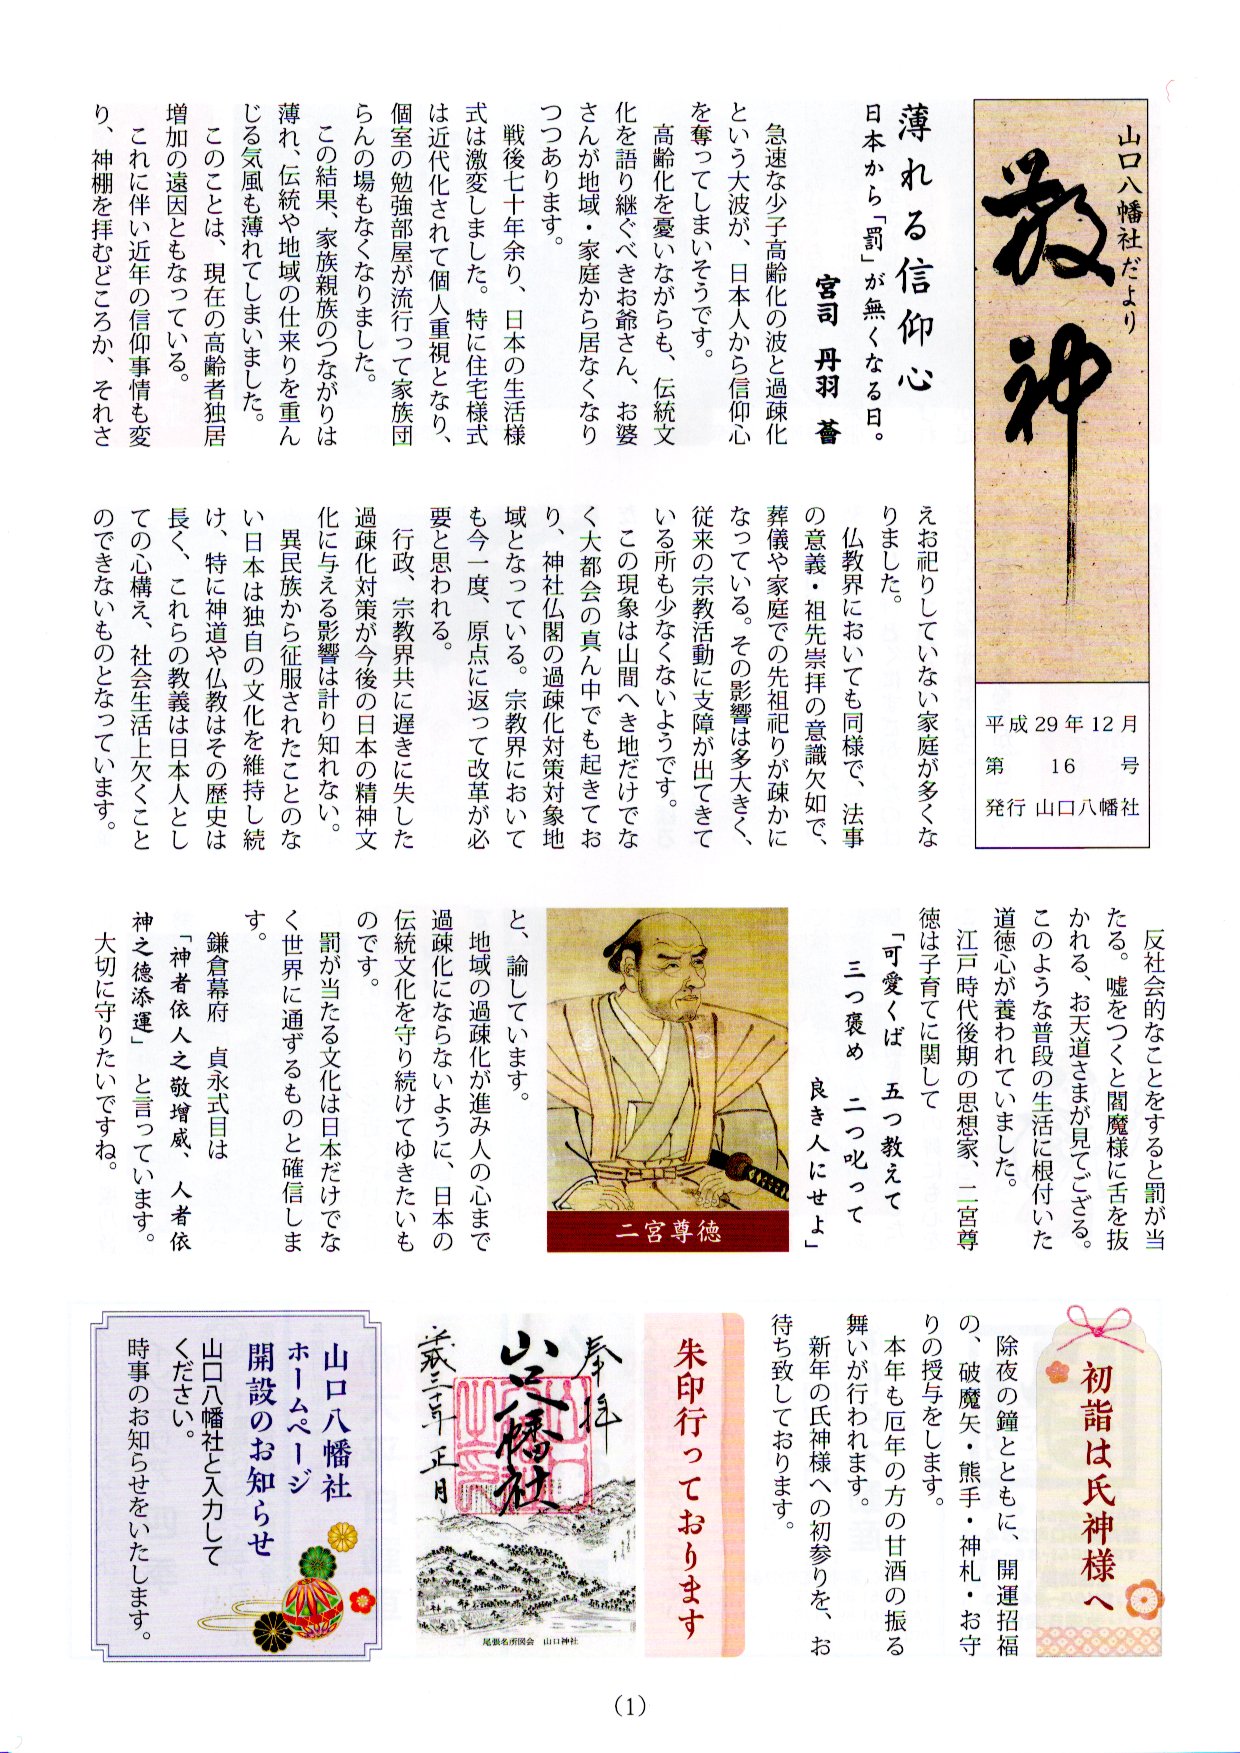 山口八幡社だより
敬神
平成29年12月
第16号
発行 山口八幡社
薄れる信仰心
日本から「罰」が無くなる日。
宮司 丹羽 薈
急速な少子高齢化の波と過疎化
という大波が、日本人から信仰心
を奪ってしまいそうです。
高齢化を憂いながらも、伝統文
化を語り継ぐべきお爺さん、お婆
さんが地域・家庭から居なくなり
つつあります。
戦後七十年余り、日本の生活様
式は激変しました。特に住宅様式
は近代化されて個人重視となり、
個室の勉強部屋が流行って家族団
らんの場もなくなりました。
この結果、家族親族のつながりは
薄れ、伝統や地域の仕来りを重ん
じる気風も薄れてしまいました。
このことは、現在の高齢者独居
増加の遠因ともなっている。
これに伴い近年の信仰事情も変
り、神棚を拝むどころか、それさ
えお祀りしていない家庭が多くな
りました。
仏教界においても同様で、法事
の意義・祖先崇拝の意識欠如で、
葬儀や家庭での先祖祀りが疎かに
なっている。その影響は多大きく、
従来の宗教活動に支障が出てきて
いる所も少なくないようです。
この現象は山間へき地だけでな
く大都会の真ん中でも起きてお
り、神社仏閣の過疎化対策対象地
域となっている。宗教界において
も今一度、原点に返って改革が必
要と思われる。
行政、宗教界共に遅きに失した
過疎化対策が今後の日本の精神文
化に与える影響は計り知れない。
異民族から征服されたことのな
い日本は独自の文化を維持し続
け、特に神道や仏教はその歴史は
長く、これらの教義は日本人とし
ての心構え、社会生活上欠くこと
のできないものとなっています。
反社会的なことをすると罰が当
たる。嘘をつくと閻魔様に舌を抜
かれる、お天道さまが見てござる。
このような普段の生活に根付いた
道徳心が養われていました。
江戸時代後期の思想家、二宮尊
徳は子育てに関して
「可愛くば 五つ教えて
三つ褒め 二つ叱って
良き人にせよ」
二宮尊徳
と、諭しています。
地域の過疎化が進み人の心まで
過疎化にならないように、日本の
伝統文化を守り続けてゆきたいも
のです。
罰が当たる文化は日本だけでな
く世界に通ずるものと確信しま
す。
鎌倉幕府 貞永式目は
「神者依人之敬増威、人者依
神之徳添運」と言っています。
大切に守りたいですね。
初詣は氏神様へ
除夜の鐘とともに、開運招福
の、破魔矢・熊手・神札・お守
りの授与をします。
本年も厄年の方の甘酒の振る
舞いが行われます。
新年の氏神様への初参りを、お
待ち致しております。
朱印行っております
奉拝
山口八幡社
平成三十年正月
尾張名所図会 山口神社
山口八幡社
ホームページ
開設のお知らせ
山口八幡社と入力して
ください。
時事のお知らせをいたします。
(1)